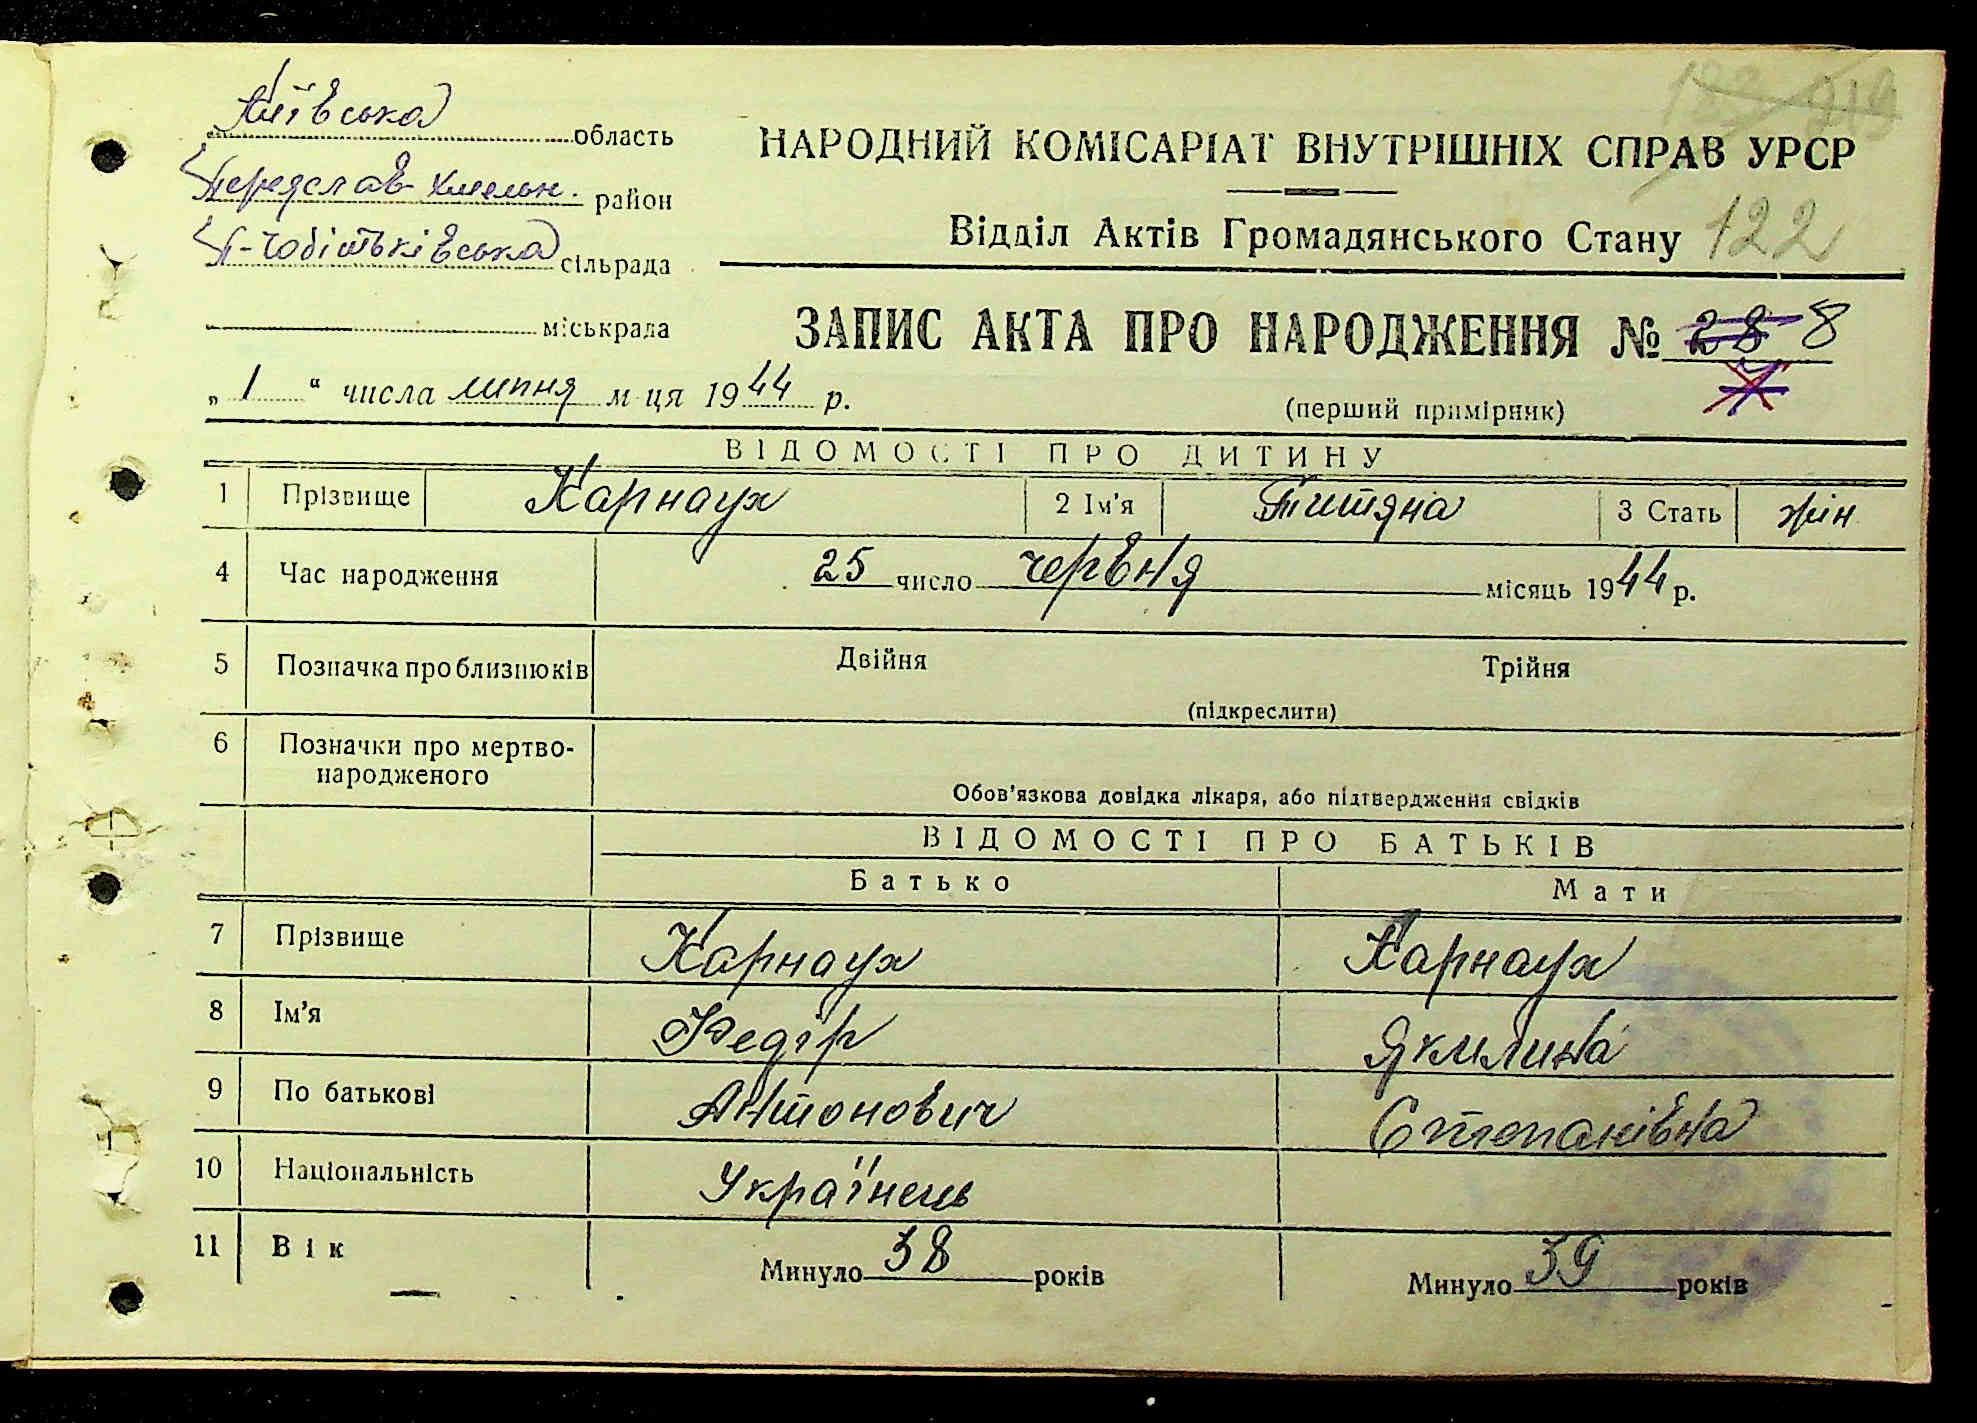 Київська область
Переяслав-Хмельн. район
П-Чобітьківська сільрада
міськрада
НАРОДНИЙ КОМІСАРІАТ ВНУТРІШНІХ СПРАВ УРСР
Відділ Актів Громадянського Стану 122
ЗАПИС АКТА ПРО НАРОДЖЕННЯ № 28 8
„1“ числа липня м-ця 1944 р.
(перший примірник)
ВІДОМОСТІ ПРО ДИТИНУ
1 Прізвище Карнаух 2 Ім'я Титяна 3 Стать жін
4 Час народження 25 число червня місяць 1944 р.
5 Позначка про близнюків Двійня Трійня
(підкреслити)
6 Позначки про мертво-
народженого
Обов'язкова довідка лікаря, або підтвердження свідків
ВІДОМОСТІ ПРО БАТЬКІВ
Батько Мати
7 Прізвище Карнаух Карнаух
8 Ім'я Федір Якилина
9 По батькові Антонович Степанівна
10 Національність Українець
11 Вік Минуло 38 років Минуло 39 років